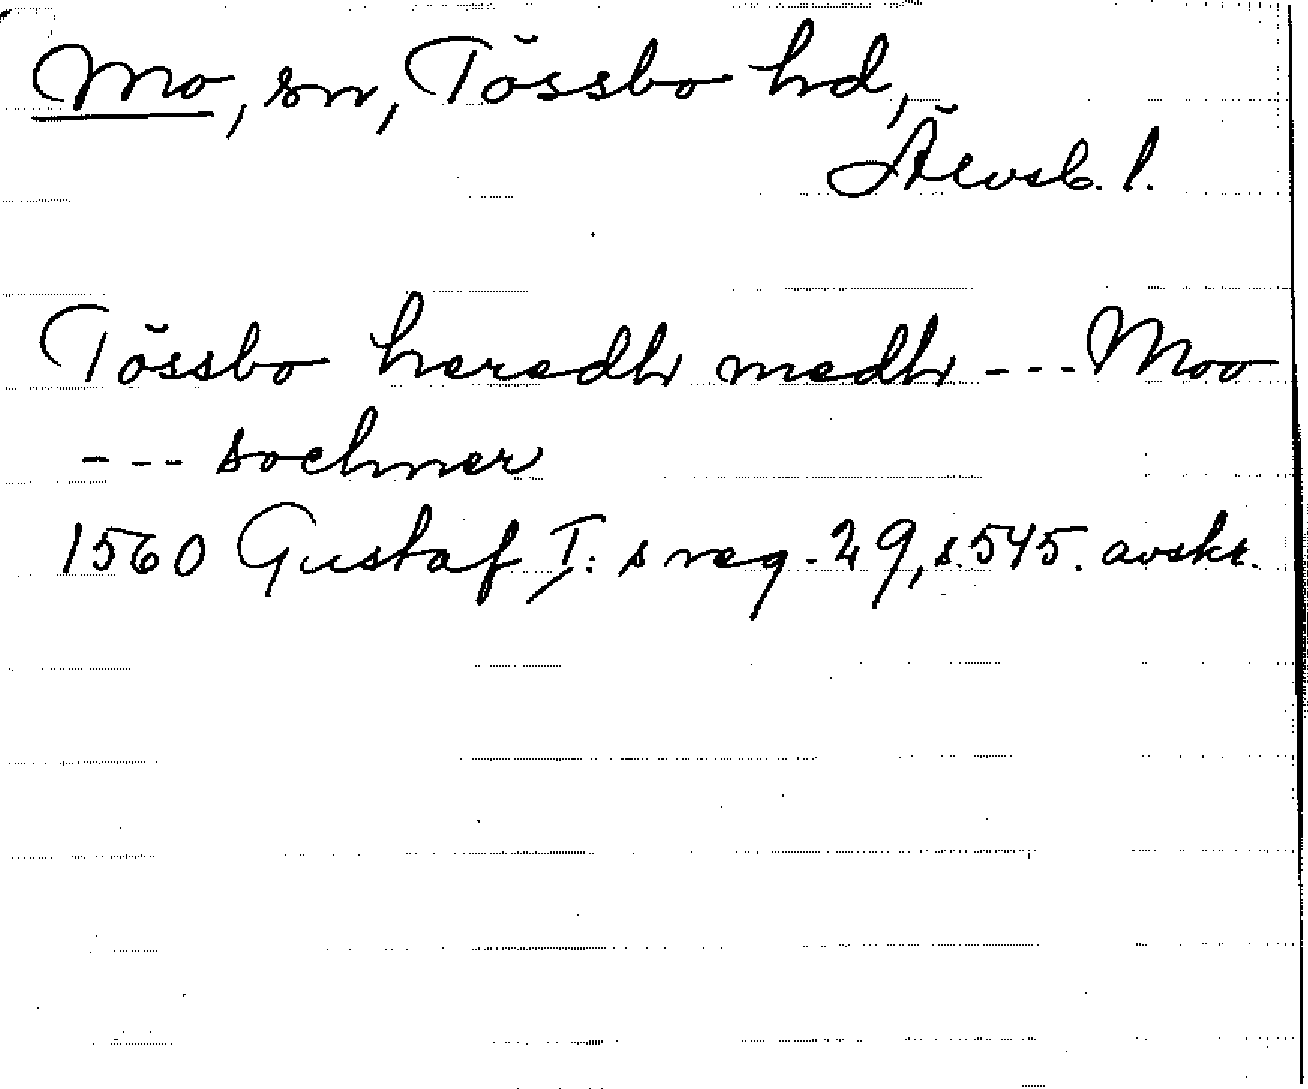 Mo, sn, Tössbo hd,
Älvsb. l.
Tössbo heredh medh --- Moo
--- sochner
1560 Gustaf I:s reg. 29, s. 545. avskr.